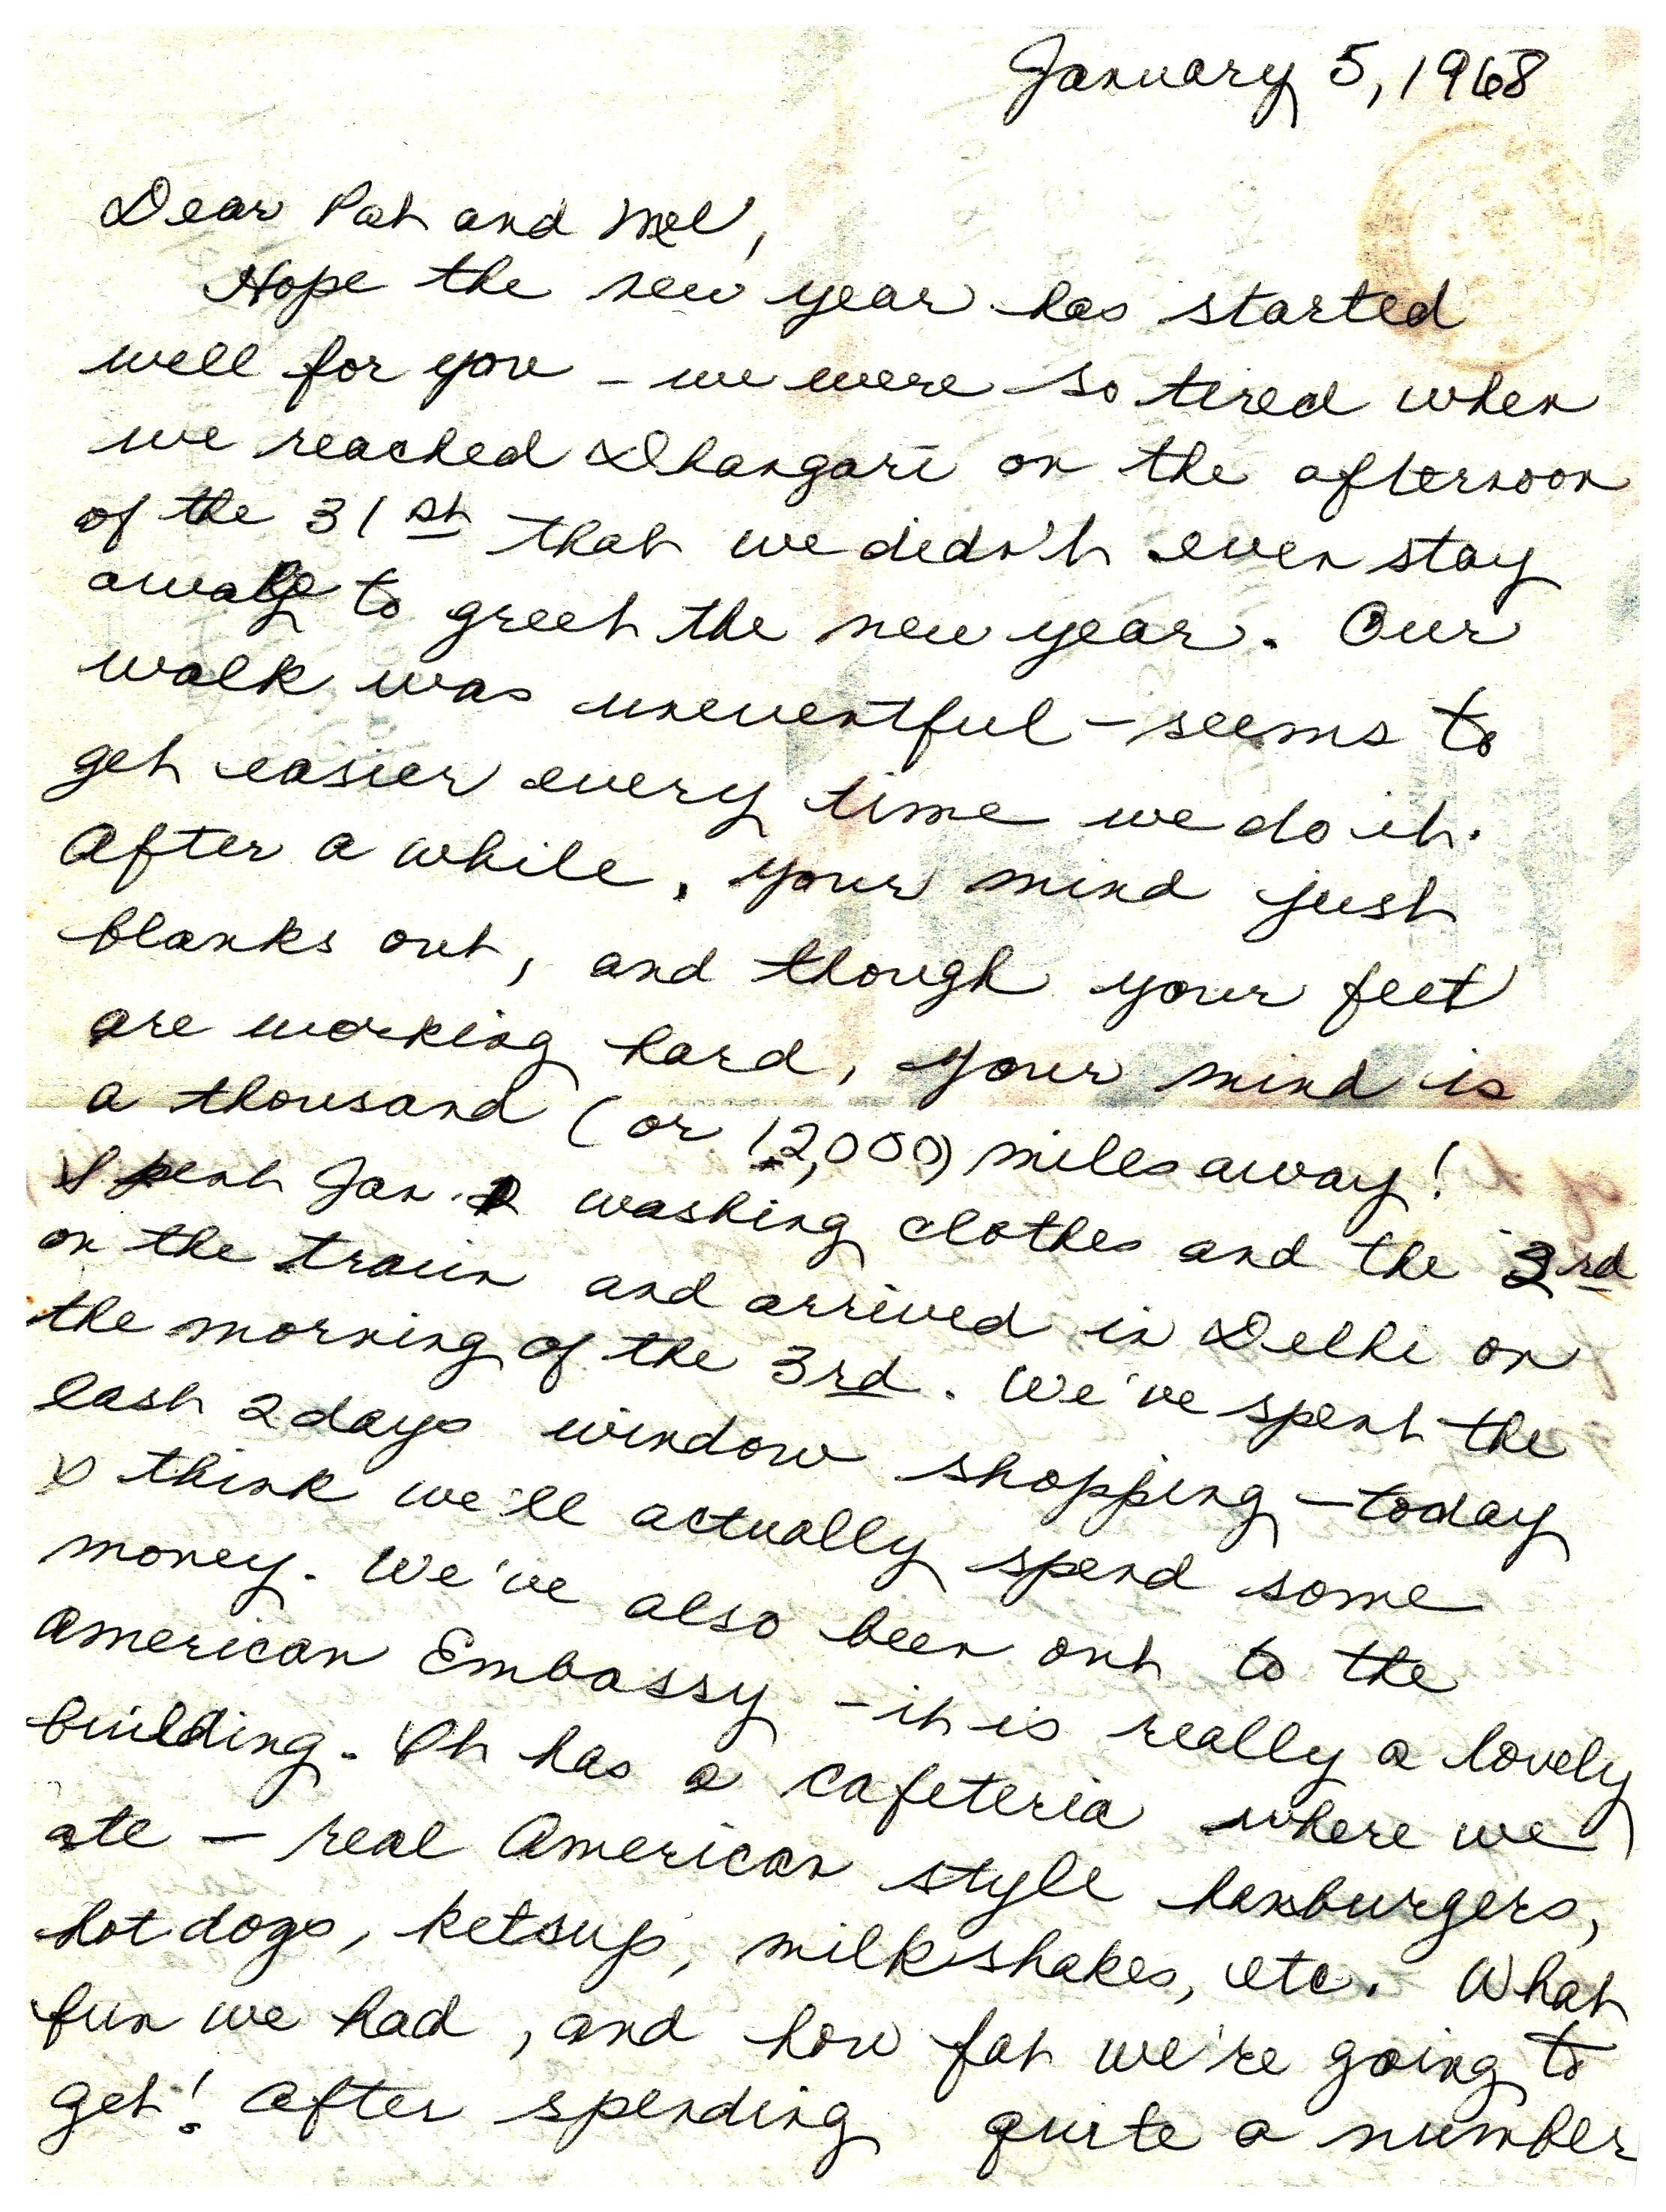 January 5, 1968
Dear Pat and Mel,
Hope the new year has started
well for you - we were so tired when
we reached Dhangari on the afternoon
of the 31st that we didn't even stay
awake to greet the new year. Our
walk was uneventful - seems to
get easier every time we do it.
After a while, your mind just
blanks out, and though your feet
are working hard, your mind is
a thousand (or 12,000) miles away!
Spent Jan. 1 washing clothes and the
on the train and arrived in Delhi on
the morning of the 3rd. We've spent the
last 2 days window shopping - today
I think we'll actually spend some
money. We've also been out to the
American Embassy - it is really a lovely
building. It has a cafeteria where we
ate - real American style hamburgers,
hot dogs, ketsup, milkshakes, etc. What
fun we had, and how fat we're going to
get! After spending quite a number